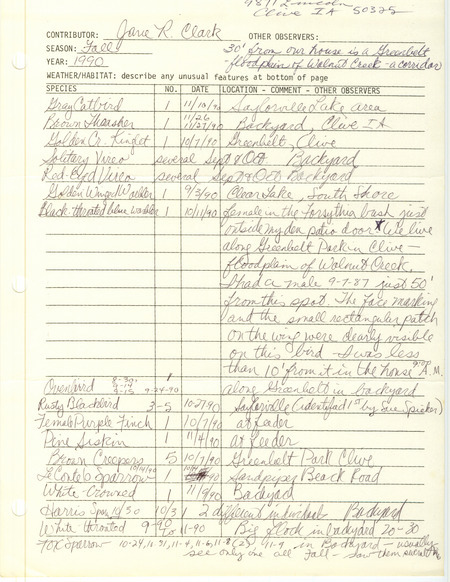 Clive IA 50325
CONTRIBUTOR: Jane R. Clark OTHER OBSERVERS:
SEASON: Fall 30' from our house is a Greenbelt
YEAR: 1990 floodplain of Walnut Creek - a corridor)
WEATHER/HABITAT: describe any unusual features at bottom of page
SPECIES NO. DATE LOCATION - COMMENT - OTHER OBSERVERS
Gray Catbird 1 11/10/90 Saylorville Lake area
Brown Thrasher 1 11/26 11/27/90 Backyard, Clive IA
Golden Cr. Kinglet 1 10/7/90 Greenbelt, Clive
Solitary Vireo several Sept & Oct Backyard
Red-Eyed Vireo several Sept & Oct Backyard
Golden Winged Warbler 1 9/3/90 Clear Lake, South Shore
Black-throated blue warbler 1 10/11/90 female in the forsythia bush just
outside my den patio door * We live
along Greenbelt Park in Clive -
floodplain of Walnut Creek.
I had a male 9-7-87 just 50'
from this spot. The face marking
and the small rectangular patch
on the wing were clearly visible
on this bird - I was less
than 10' from it in the house A.M.
Ovenbird 9-24-90 along Greenbelt in backyard
Rusty Blackbird 3-5 10-27-90 Saylorville (identified 1st by Sue Spieker)
Female Purple Finch 1 10/7/90 at feeder
Pine Siskin 1 11/4/90 at feeder
Brown Creepers 5 10/7/90 Greenbelt Park Clive
LeConte's Sparrow 1 Sandpiper Beach Road
White-Crowned 1 11/9/90 Backyard
Harris Spar 10/30 10/31 2 different individuals Backyard
White throated 9-90 to 11-90 Big flock in backyard 20-30
Fox Sparrow 10-24, 11-4, 11-6, 11-8 (2) in Backyard - usually
see only one all Fall - saw them several